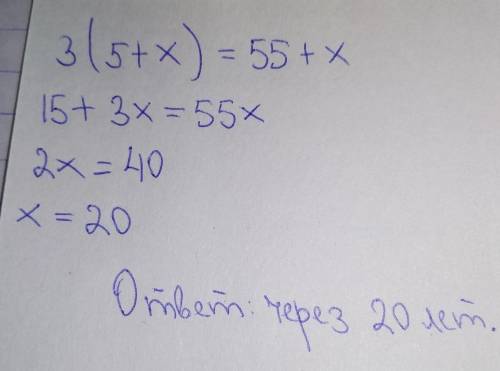 3(5+x)=55+x
15+3x=55x
2x=40
x=20
Ответ: через 20 лет.